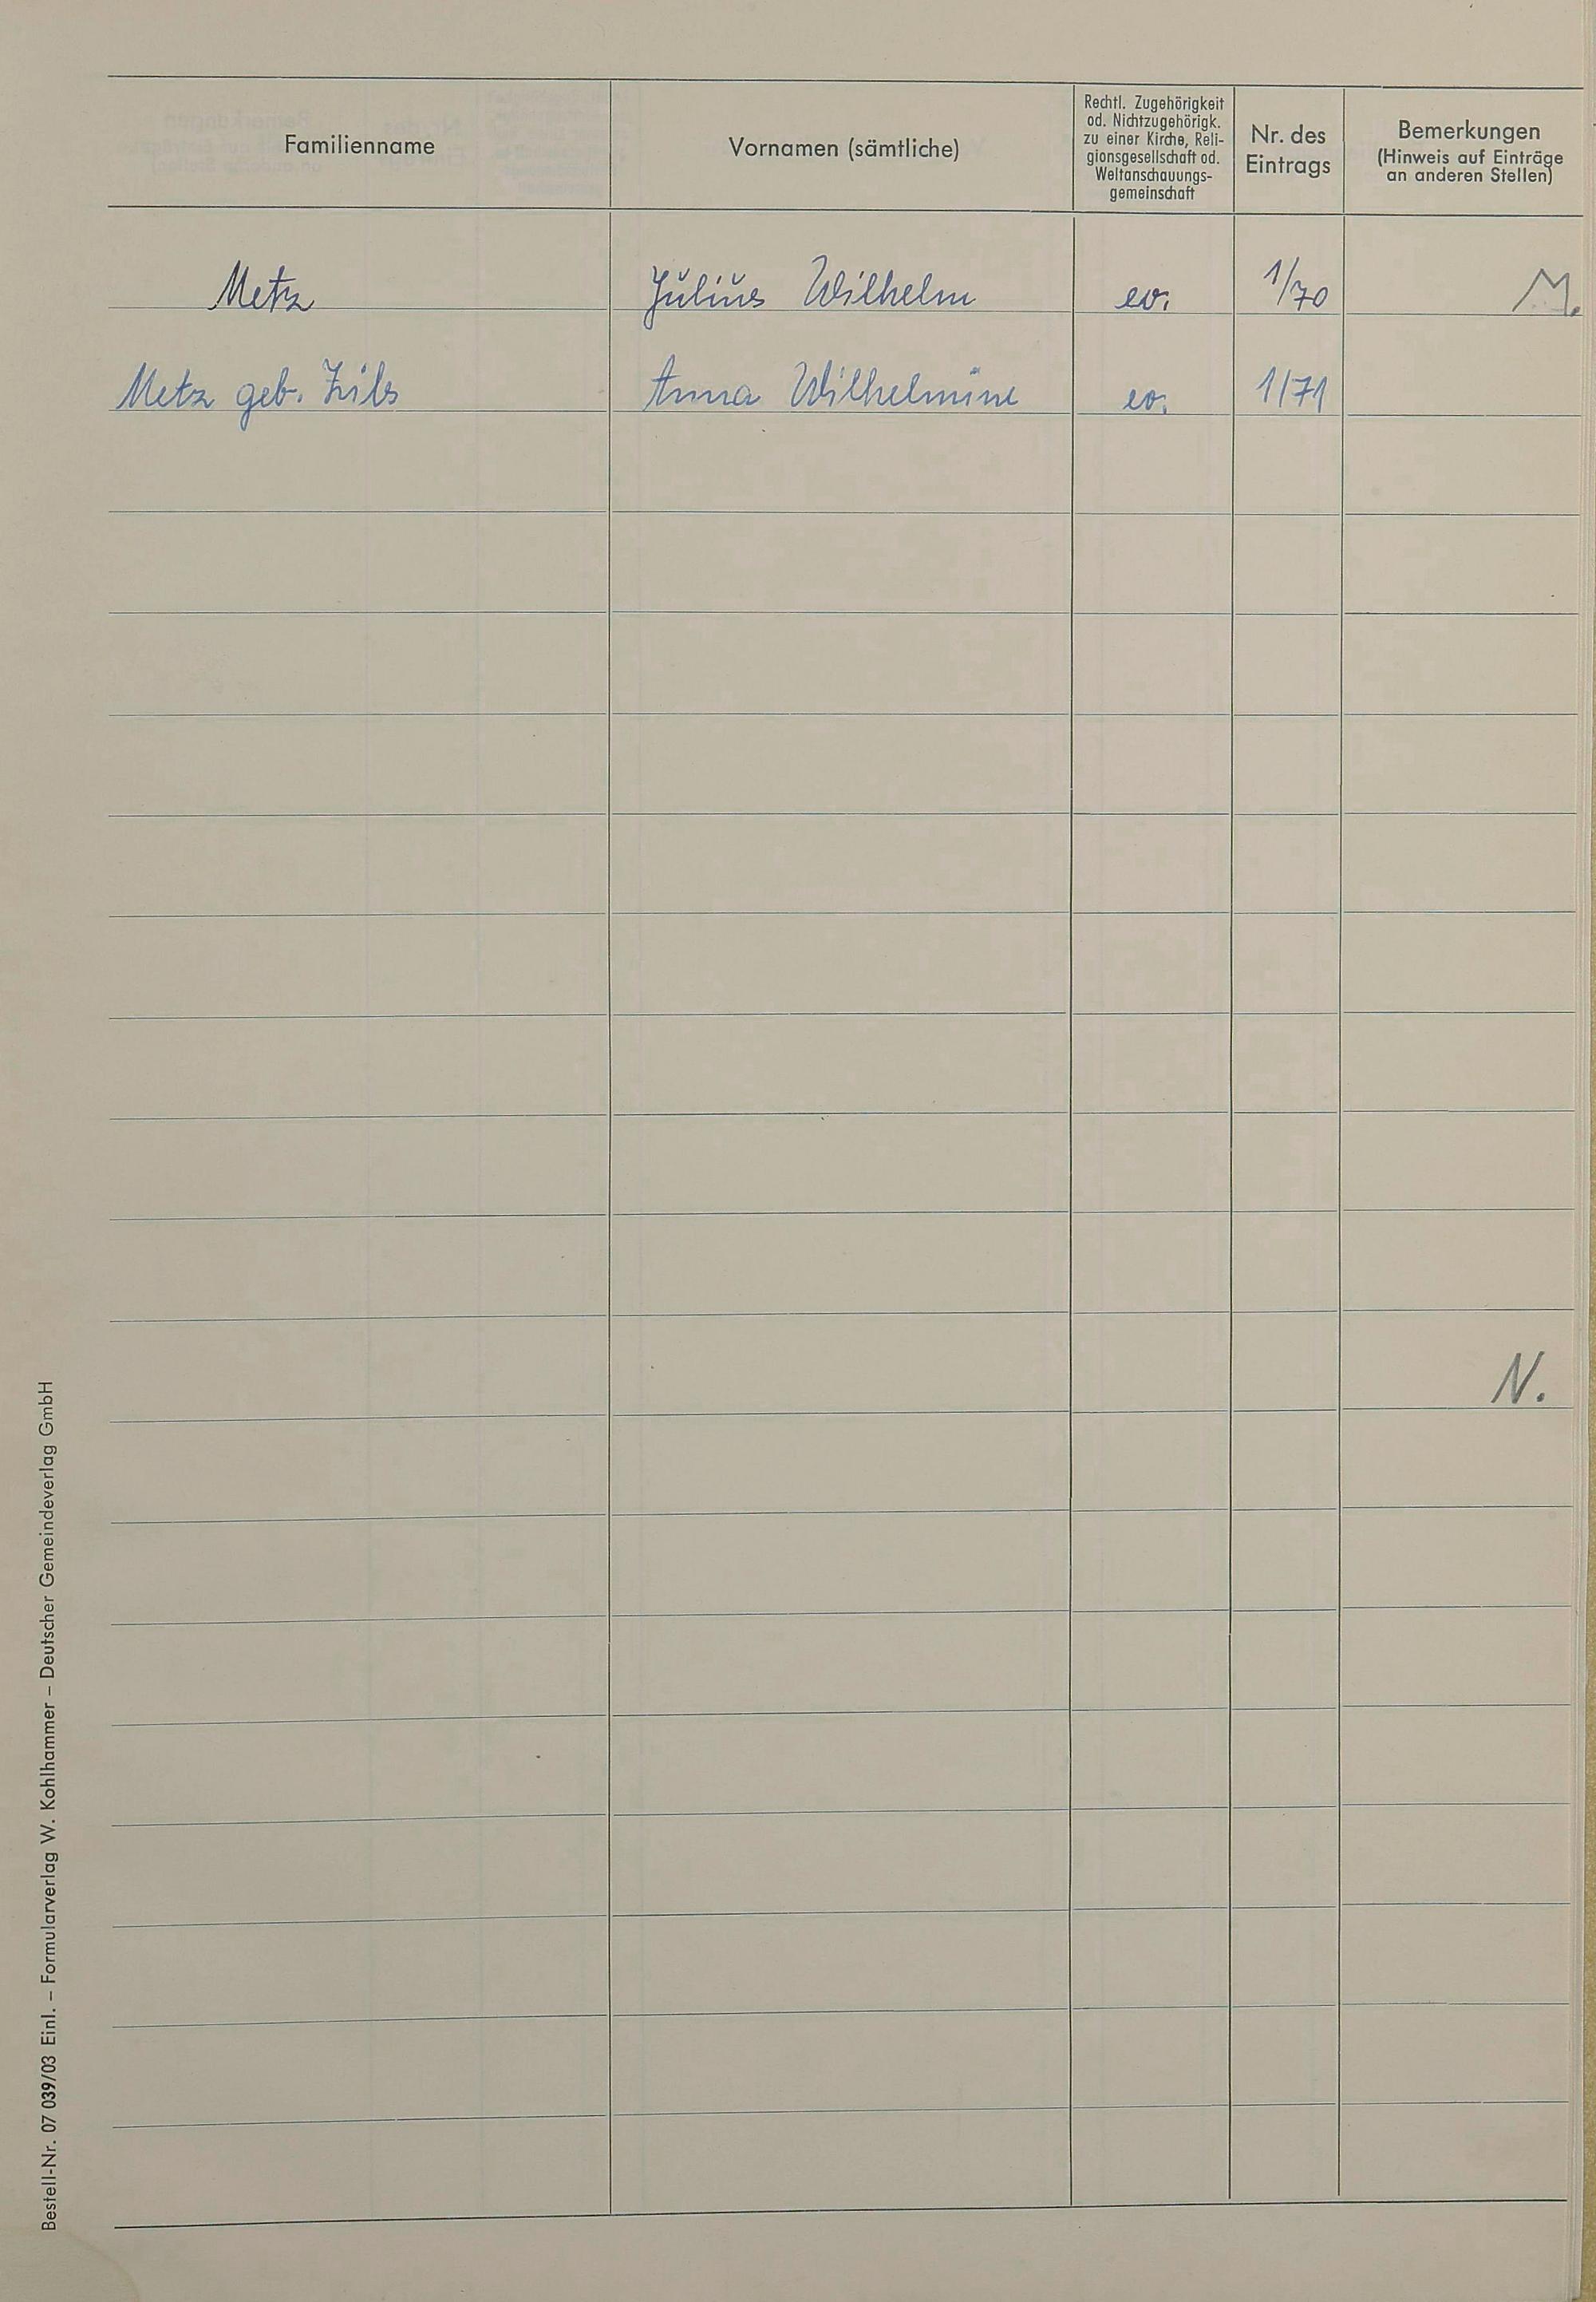 Familienname
Vornamen (sämtliche)
Rechtl. Zugehörigkeit
od. Nichtzugehörigk.
zu einer Kirche, Reli-
gionsgesellschaft od.
Weltanschauungs-
gemeinschaft
Nr. des
Eintrags
Bemerkungen
(Hinweis auf Einträge
an anderen Stellen)
Metz Julius Wilhelm ev. 1/70 M.
Metz geb. Zils Anna Wilhelmine ev. 1/71
N.
Bestell-Nr. 07 039/03 Einl. – Formularverlag W. Kohlhammer – Deutscher Gemeindeverlag GmbH